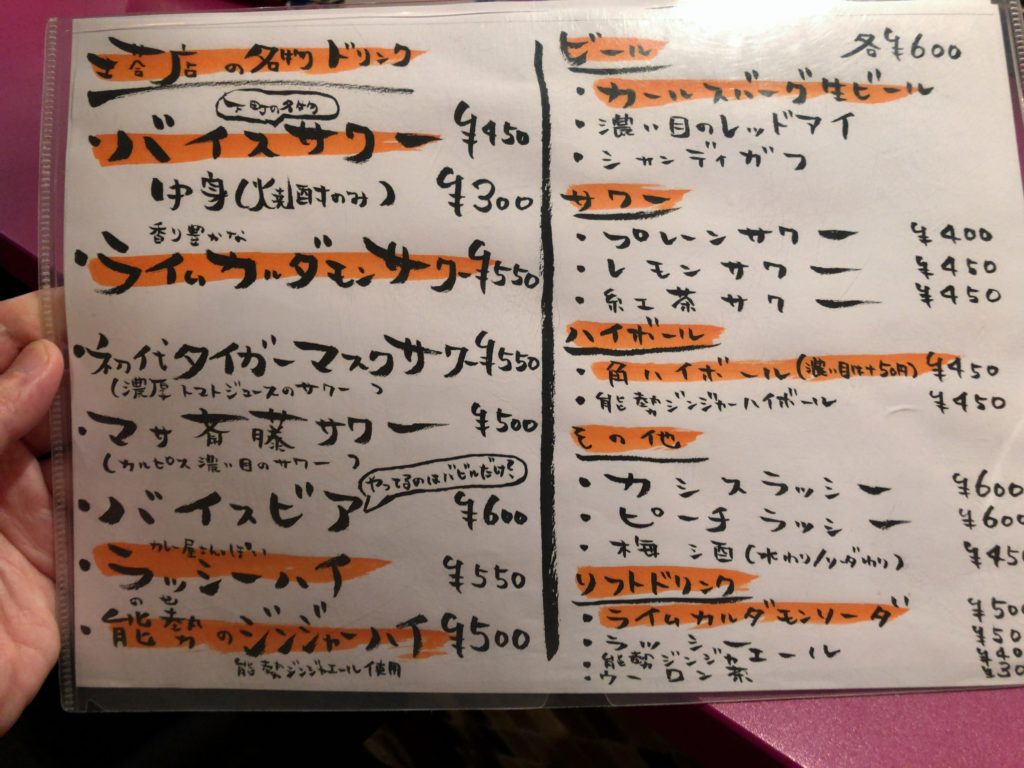 当店の名物ドリンク
下町の名物
・バイスサワー ¥450
中身(焼酎のみ) ¥300
香り豊かな
・ライムカルダモンサワー ¥550
・初代タイガーマスクサワー ¥550
(濃厚トマトジュースのサワー)
・マサ斎藤サワー ¥500
(カルピス濃い目のサワー)
やってるのはバビルだけ!
・バイスビア ¥600
カレー屋さんっぽい
・ラッシーハイ ¥550
のせ
・能勢のジンジャーハイ ¥500
能勢ジンジャエール使用
ビール 各¥600
・カールスバーグ生ビール
・濃い目のレッドアイ
・シャンディガフ
サワー
・プレーンサワー ¥400
・レモンサワー ¥450
・紅茶サワー ¥450
ハイボール
・角ハイボール(濃い目は+50円) ¥450
・能勢ジンジャーハイボール ¥450
その他
・カシスラッシー ¥600
・ピーチラッシー ¥600
・梅酒(水わり/ソーダわり) ¥450
ソフトドリンク
・ライムカルダモンソーダ ¥500
・ラッシー
・能勢ジンジャーエール
・ウーロン茶